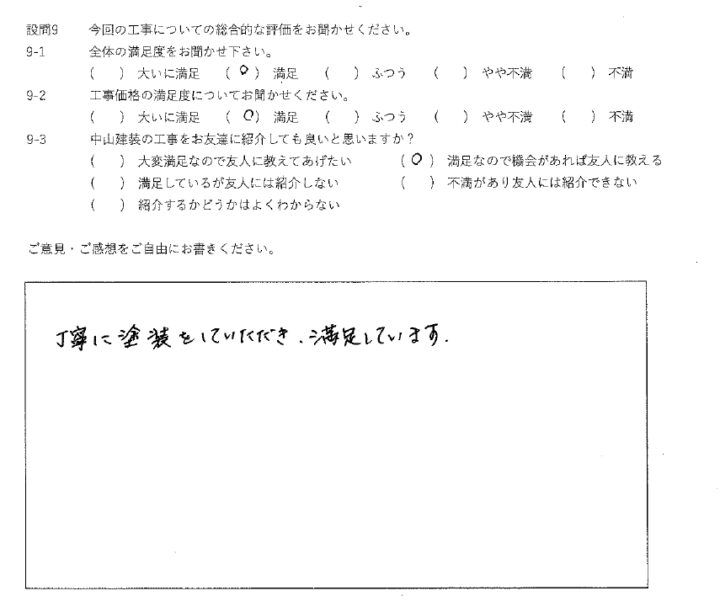 設問9 今回の工事についての総合的な評価をお聞かせください。
9-1 全体の満足度をお聞かせ下さい。
( ) 大いに満足 ( ○ ) 満足 ( ) ふつう ( ) やや不満 ( ) 不満
9-2 工事価格の満足度についてお聞かせください。
( ) 大いに満足 ( ○ ) 満足 ( ) ふつう ( ) やや不満 ( ) 不満
9-3 中山建装の工事をお友達に紹介しても良いと思いますか？
( ) 大変満足なので友人に教えてあげたい ( ○ ) 満足なので機会があれば友人に教える
( ) 満足しているが友人には紹介しない ( ) 不満があり友人には紹介できない
( ) 紹介するかどうかはよくわからない
ご意見・ご感想をご自由にお書きください。
丁寧に塗装をしていただき、満足しています.